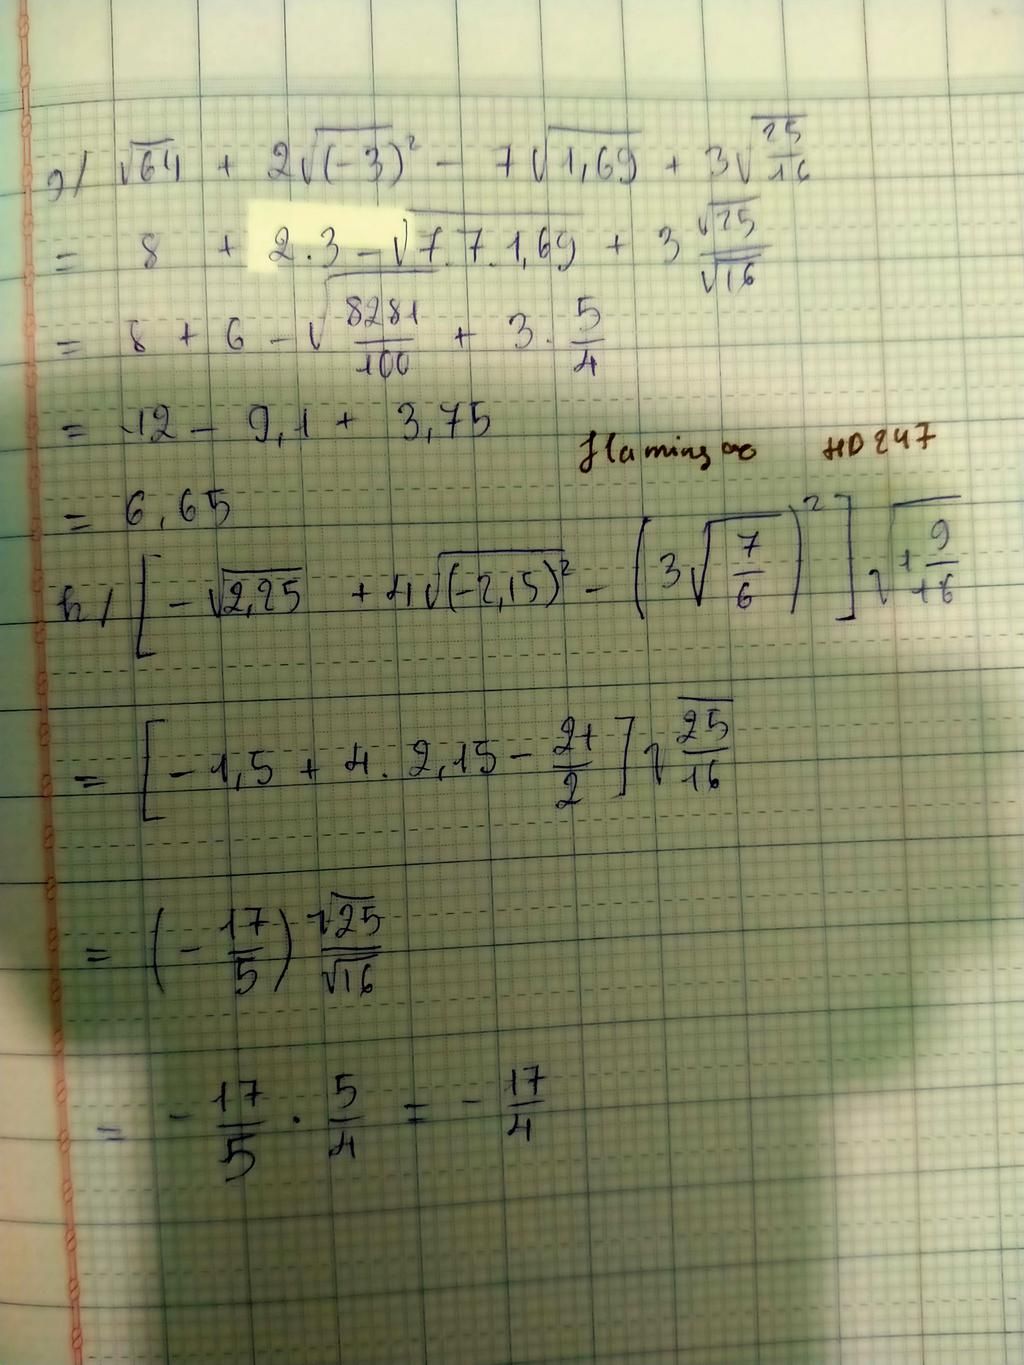 g/ √64 + 2√(-3)² - 7√1,69 + 3√25/16
= 8 + 2.3 - √7.7.1,69 + 3 √25/√16
= 8 + 6 - √8281/100 + 3. 5/4
= 12 - 9,1 + 3,75
flamingoo HD247
= 6,65
h/ [-√2,25 + 4√(-2,15)² - (3√7/6)²] √1 9/16
= [-1,5 + 4.2,15 - 21/2] √25/16
= (-17/5) √25/√16
= -17/5 . 5/4 = -17/4